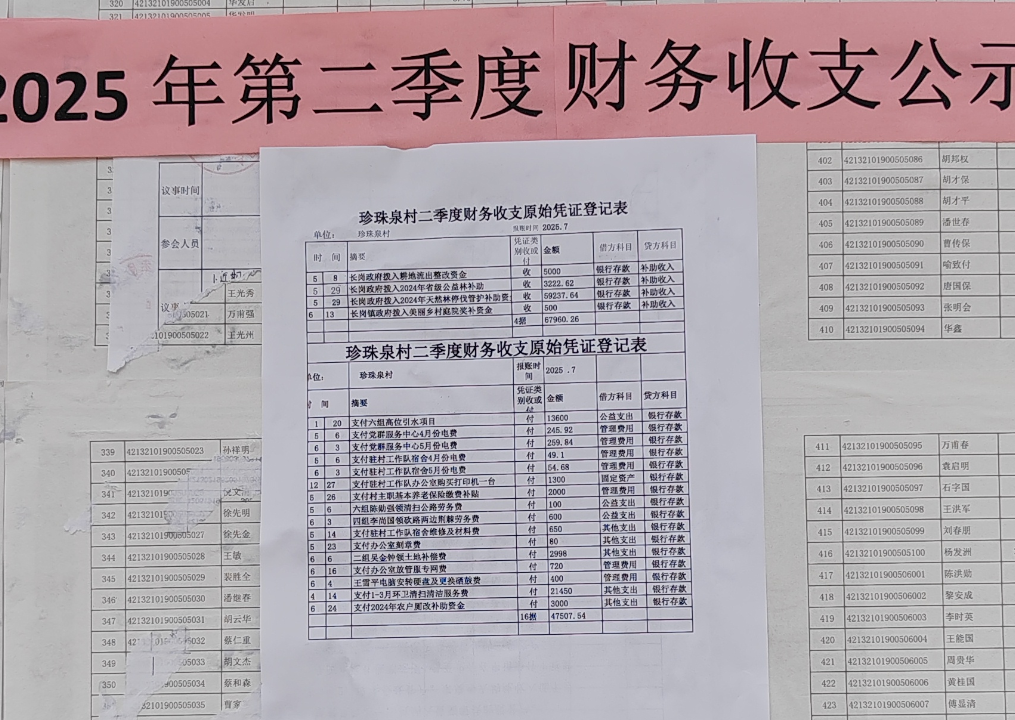 320 42132101900505004 华发启
321 42132101900505005
2025 年第二季度财务收支公示
议事时间
参会人员
王光秀
505021 万甫强
101900505022 王光州
402 42132101900505086 胡邦权
403 42132101900505087 胡才保
404 42132101900505088 胡才平
405 42132101900505089 潘世春
406 42132101900505090 曹传保
407 42132101900505091 喻致付
408 42132101900505092 唐国保
409 42132101900505093 张明会
410 42132101900505094 华鑫
珍珠泉村二季度财务收支原始凭证登记表
单位： 珍珠泉村 报账时间 2025.7
时 间 摘要 凭证类别收或付 金额 借方科目 贷方科目
5 8 长岗政府拨入耕地流出整改资金 收 5000 银行存款 补助收入
5 29 长岗政府拨入2024年省级公益林补助 收 3222.62 银行存款 补助收入
5 29 长岗政府拨入2024年天然林停伐管护补助资 收 59237.64 银行存款 补助收入
6 13 长岗镇政府拨入美丽乡村庭院奖补资金 收 500 银行存款 补助收入
4据 67960.26
珍珠泉村二季度财务收支原始凭证登记表
单位： 珍珠泉村 报账时间 2025 .7
时 间 摘要 凭证类别收或付 金额 借方科目 贷方科目
1 20 支付六组高位引水项目 付 13600 公益支出 银行存款
5 6 支付党群服务中心4月份电费 付 245.92 管理费用 银行存款
6 3 支付党群服务中心5月份电费 付 259.84 管理费用 银行存款
5 6 支付驻村工作队宿舍4月份电费 付 49.1 管理费用 银行存款
6 3 支付驻村工作队宿舍5月份电费 付 54.68 管理费用 银行存款
12 27 支付驻村工作队办公室购买打印机一台 付 1300 固定资产 银行存款
5 26 支付村主职基本养老保险缴费补贴 付 2000 管理费用 银行存款
5 6 六组陈勋强领清扫公路劳务费 付 100 公益支出 银行存款
6 3 四组李尚国领砍路两边荆棘劳务费 付 600 公益支出 银行存款
5 14 支付驻村工作队宿舍维修及材料费 付 650 其他支出 银行存款
5 23 支付办公室刻章费 付 80 其他支出 银行存款
6 6 二组吴金钟领土地补偿费 付 2998 其他支出 银行存款
6 16 支付办公室放管服专网费 付 720 管理费用 银行存款
6 4 王雪平电脑安转硬盘及更换硒鼓费 付 400 管理费用 银行存款
4 14 支付1-3月环卫清扫清洁服务费 付 21450 其他支出 银行存款
6 24 支付2024年农户厕改补助资金 付 3000 其他支出 银行存款
16据 47507.54
339 42132101900505023 孙祥明
340 4213210190050
341 4213210
342 421321 00505026 徐先明
343 5027 徐先金
344 5028 王敏
345 505029 裴胜全
346 00505030 潘继春
347 00505031 胡云华
348 505032 蔡仁重
349 505033 胡文杰
350 00505034 蔡和森
01900505035 曹家
411 42132101900505095 万甫春
412 42132101900505096 袁启明
413 42132101900505097 石字国
414 42132101900505098 王洪军
415 42132101900505099 刘春朋
416 42132101900505100 杨发洲
417 42132101900506001 陈洪勋
418 42132101900506002 黎安成
419 42132101900506003 李时英
420 42132101900506004 王能国
421 42132101900506005 周贵华
422 42132101900506006 黄桂国
423 42132101900506007 傅显清